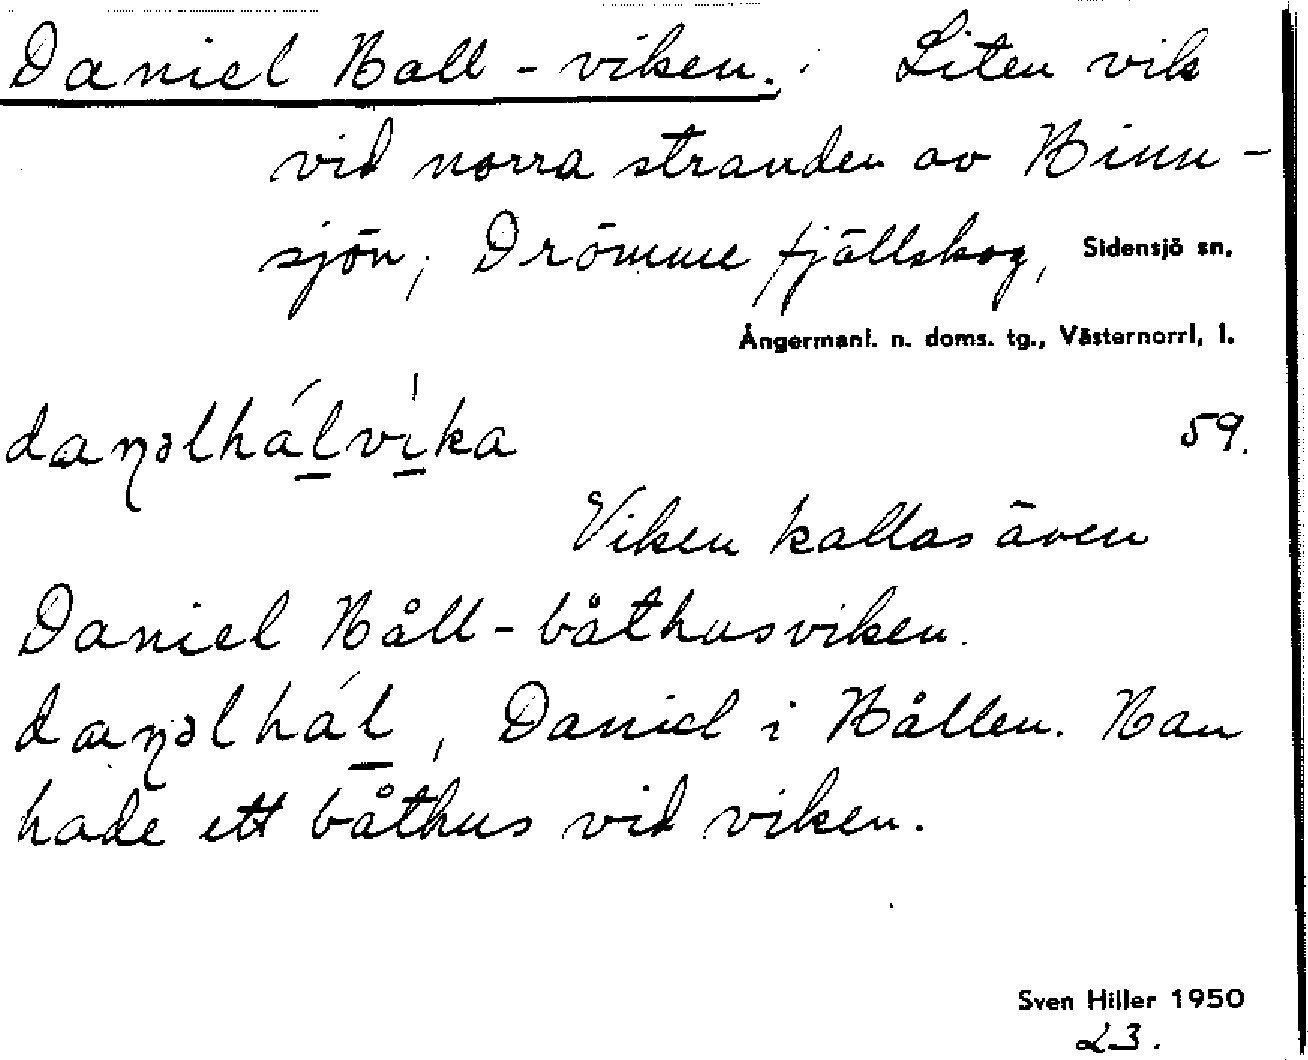 Daniel Håll-viken. Liten vik
vid norra stranden av Hinn-
sjön, Drömme fjällskog, Sidensjö sn.
Ångermanl. n. doms. tg., Västernorrl, l.
daŋəlhálvíka 59.
Viken kallas även
Daniel Håll-båthusviken.
daŋəlhál, Daniel i Hållen. Han
hade ett båthus vid viken.
Sven Hiller 1950
23.